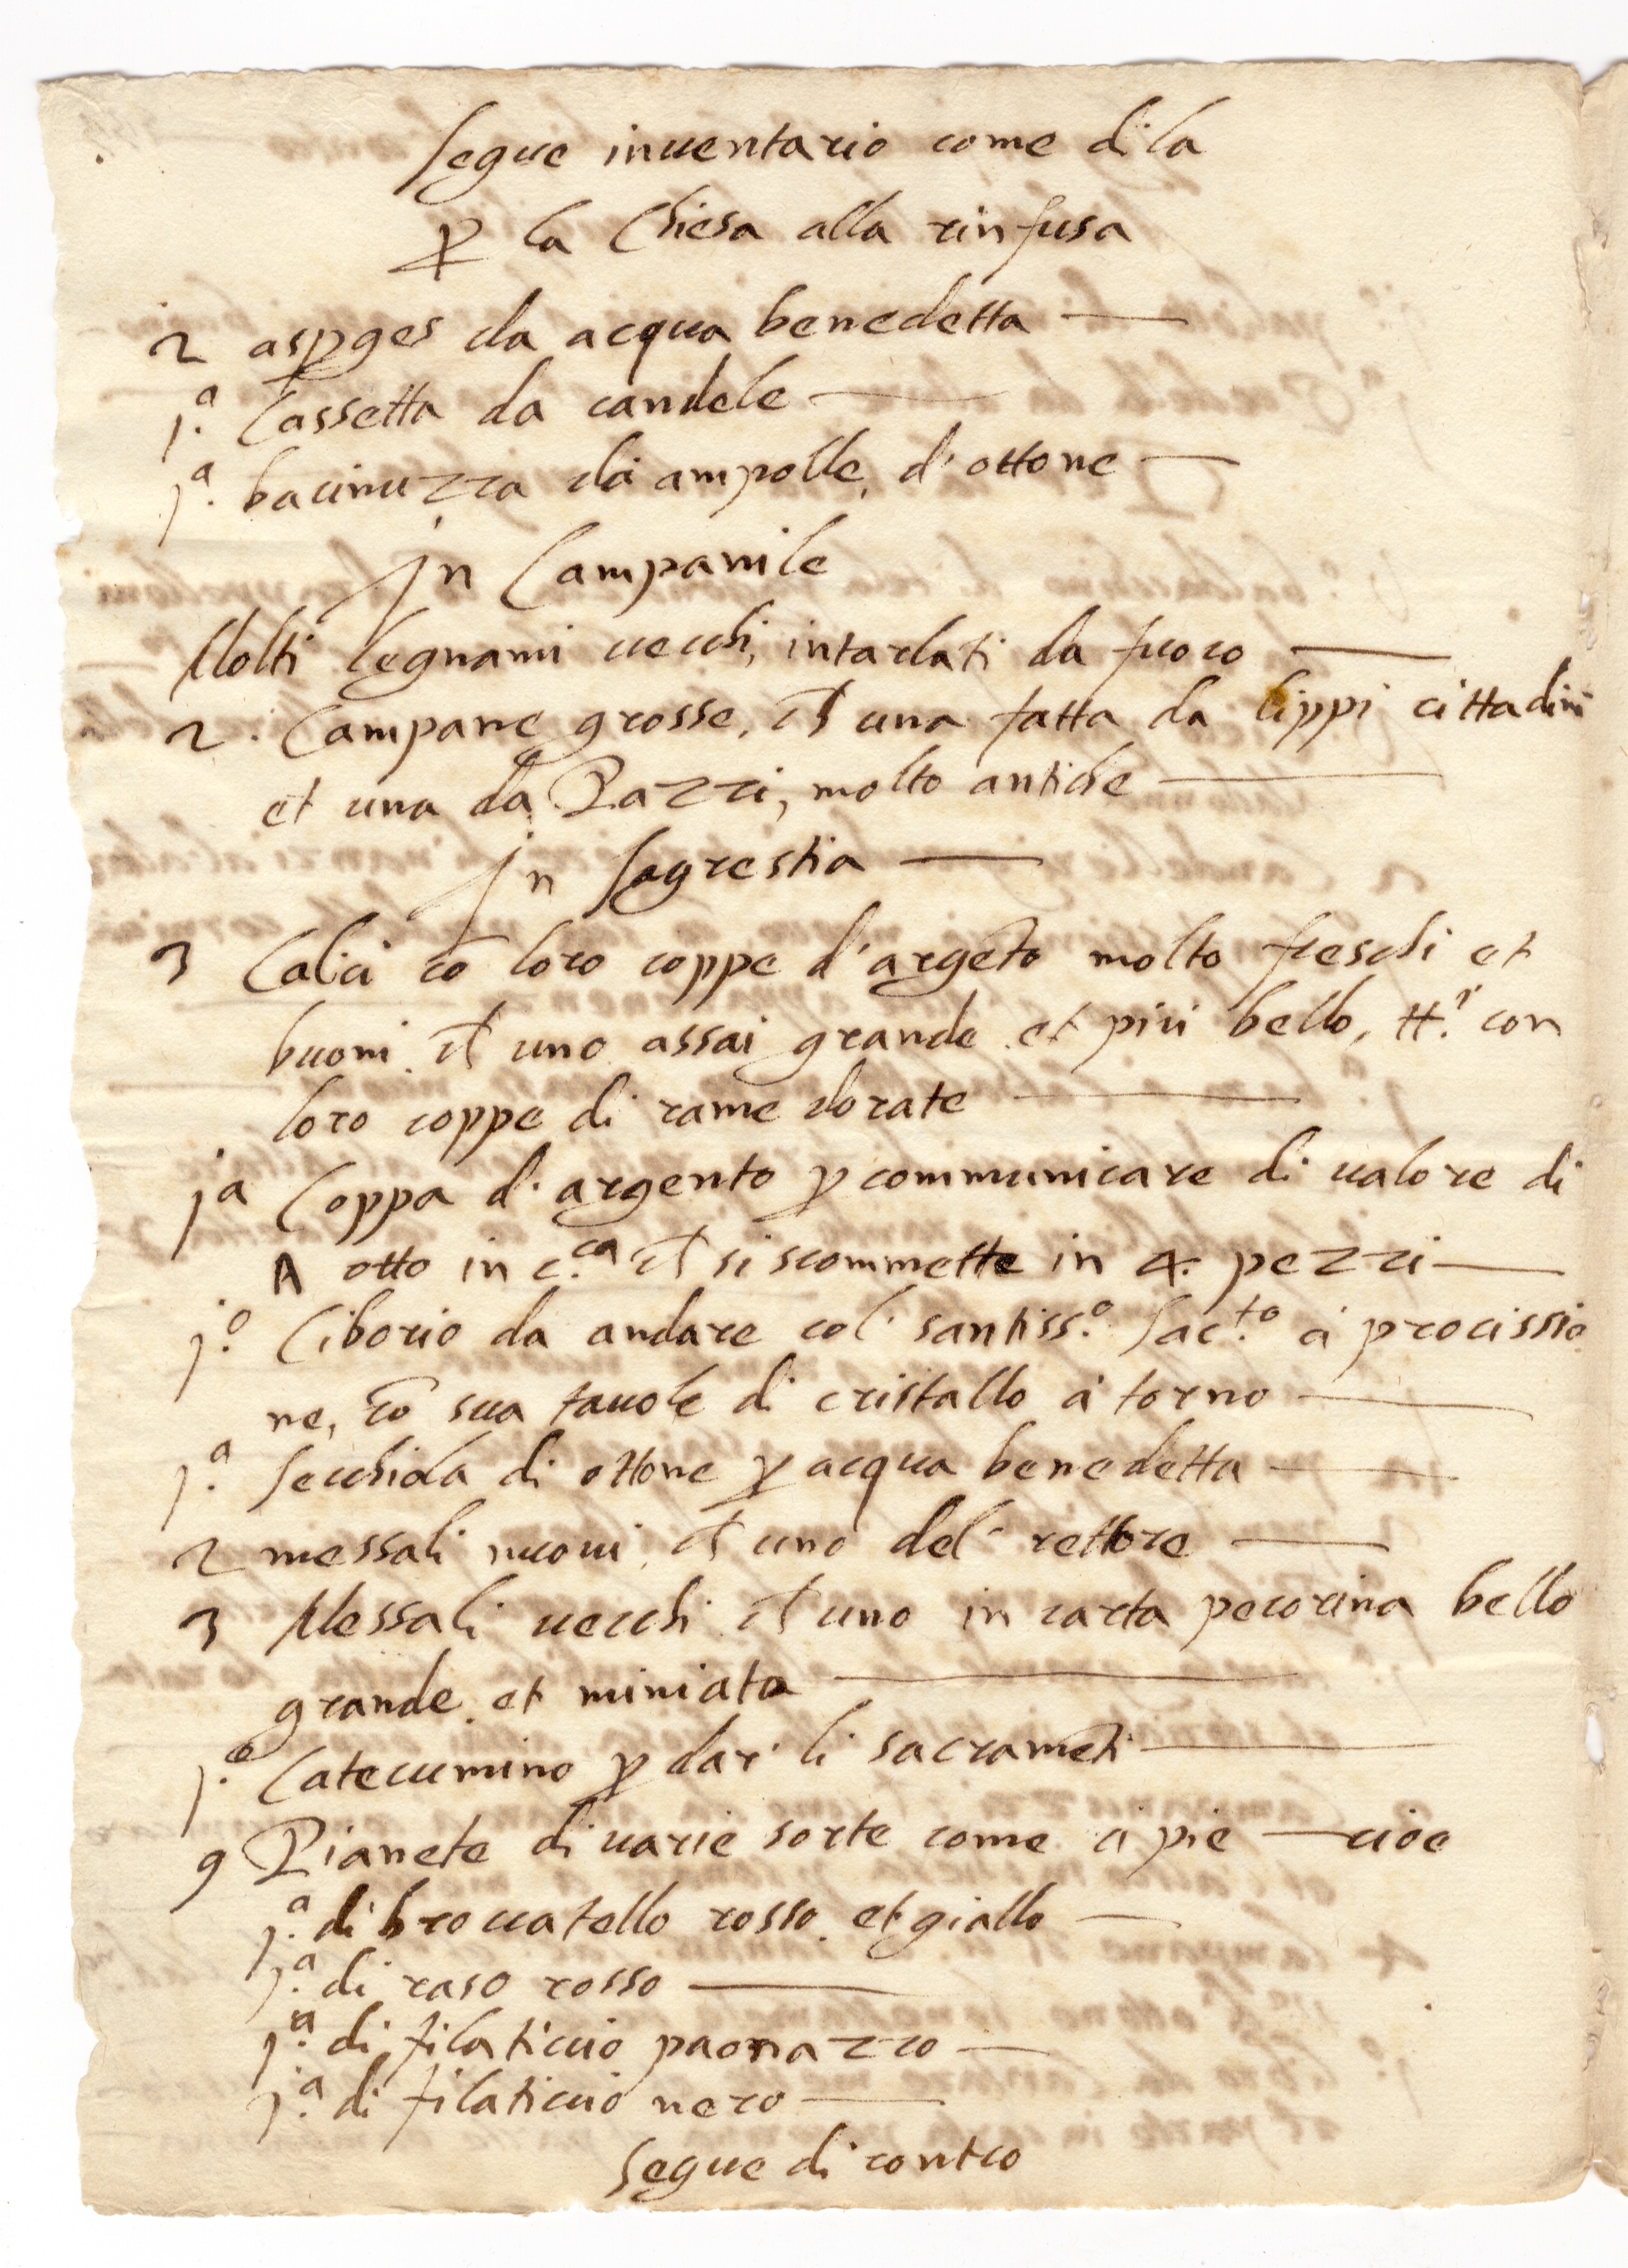 Segue inuentario come di la
ꝑ la Chiesa alla rinfusa
2 asꝑges da acqua benedetta
j.ª Cassetta da candele
j.ª bacinuzza da ampolle, d'ottone
jn Campanile
Molti legnami uecchi, intarlati da fuoro
2. Campane grosse, una fatta da lippi cittadini
et una da Pazzi, molto antiche
jn Sagrestia
3 Calici cō loro coppe d'argēto molto freschi et
buoni. uno assai grande et più bello, tt.i con
loro coppe di rame dorate
jª Coppa d'argento ꝑ communicare di ualore di
otto in c.ca si scommette in 4. pezzi
j.º Ciborio da andare col santiss.º Sac.to à procissio
ne, cō sua tauole di cristallo à torno
j.ª Secchiola di ottone ꝑ acqua benedetta
2 messali nuoui, uno del rettore
3 Messali uecchi uno in carta pecorina bello
grande et miniato
j.º Catecumino ꝑ dar' li sacramēti
9 Pianete di uarie sorte come à piè cioe
j.ª di broccatello rosso et giallo
j.ª di raso rosso
j.ª di filaticcio paonazzo
j.ª di filaticcio nero
Segue di contro